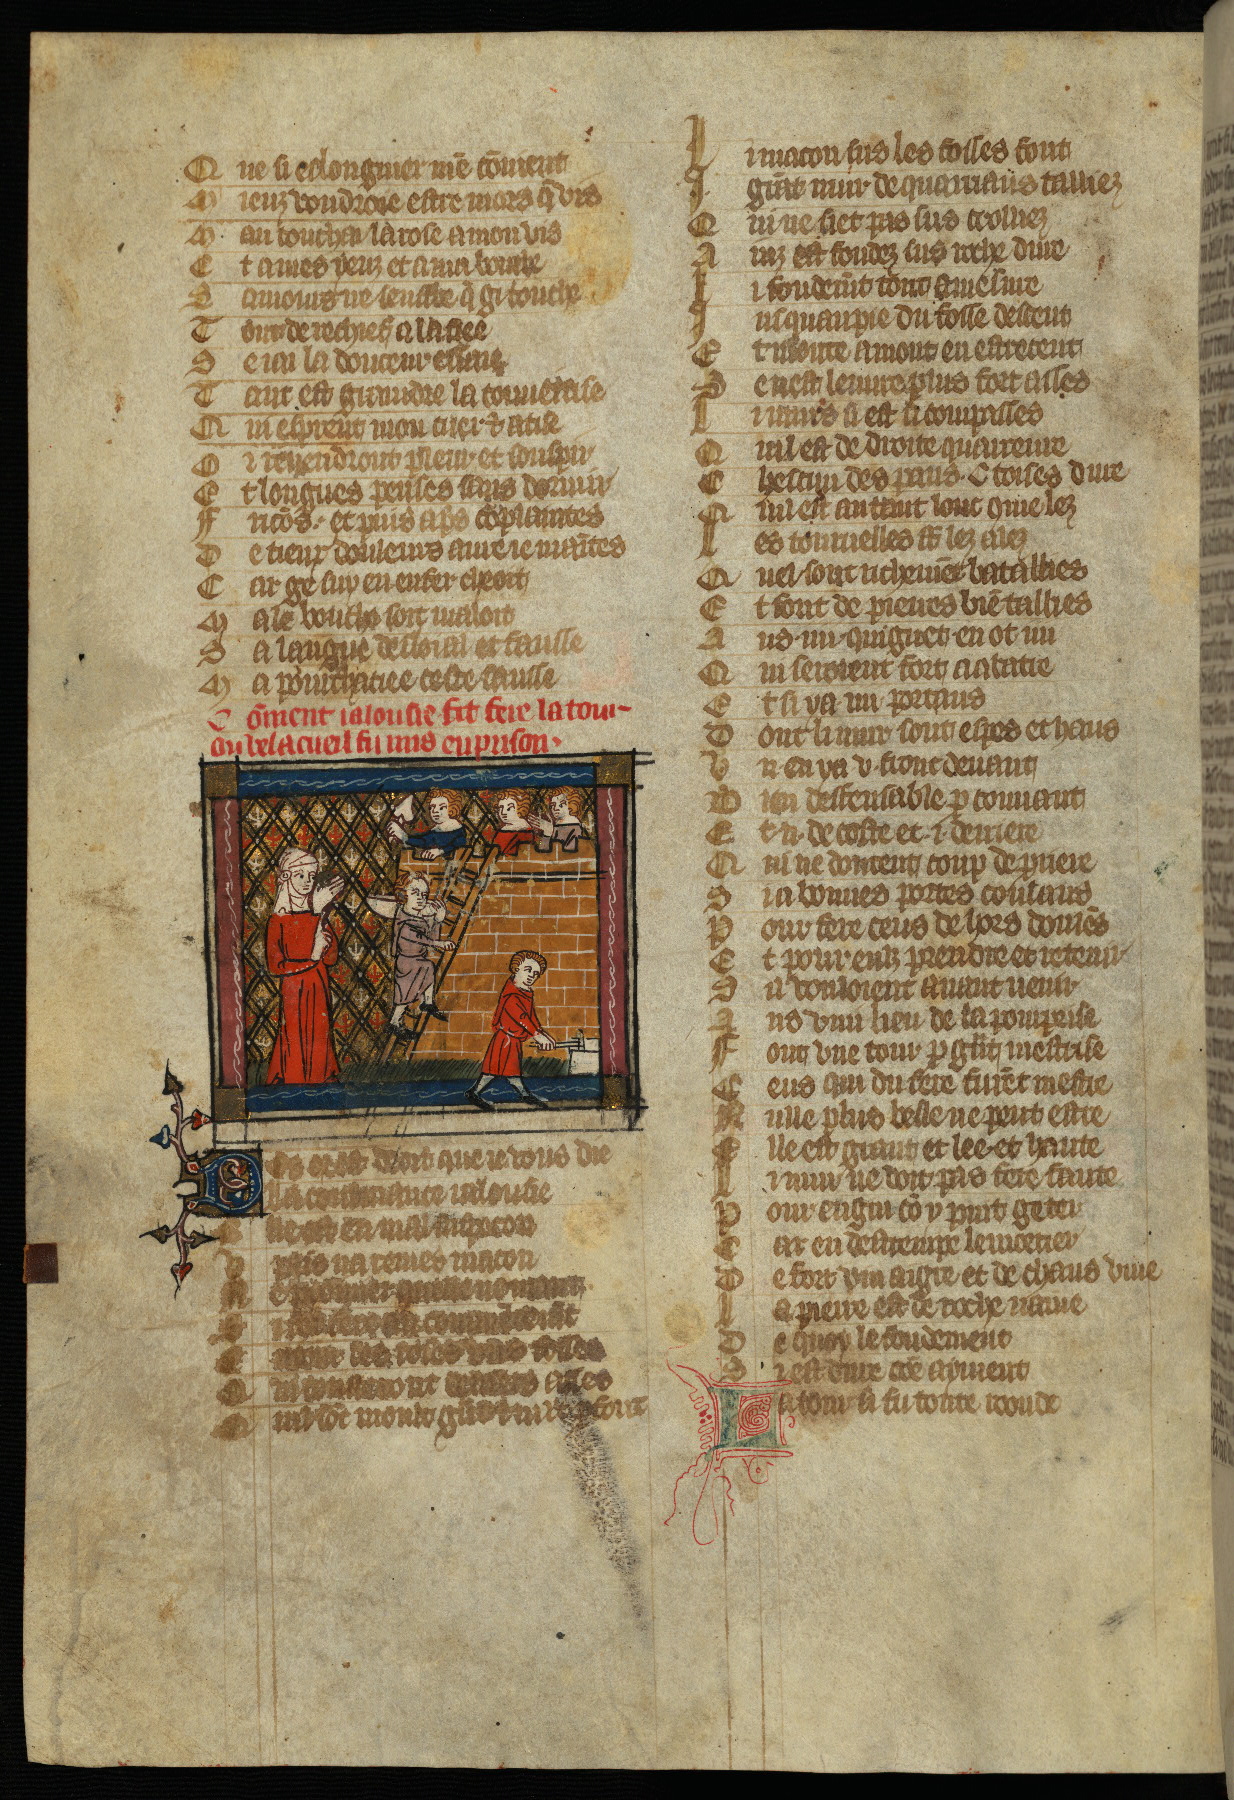 Q ne si eslongnier mē cōuient
M ieuz voudroie estre mors q̄ vis
M au toucha la rose a mon vis
E t a mes yeuz et a ma bouche
S amours ne seuffre q̄ gi touche
T out de rechief a la fiee
S e iai la douceur essaie
T ant est graindre la couuoitise
Q ui esprent mon cuer & atise
O r reuendront pleur et souspir
E t longues penses sans dormir
F ricōs et puis aps cōplaintes
D e tieux douleurs aure ie maītes
C ar ge suy en enfer cheoit
M ale bouche soit maloit
S a langue desloial et fausse
M a pourchaciee ceste sausse
Cōment ialousie fit fere la tour
ou belacueil fu mis en prison
Des or est droit que ie vous die
La contenance ialousie
Elle est en mal soupecon
v pais na remes macon
N e pionnier quelle ne mant
S i fet fere au commēcemēt
E ntour les roses vns fosses
Q ui cousteront deniers asses
Q uil sōt moult grāt
L i macon sus les fosses font
J grāt mur de quarriaus talliez
Q ui ne siet pas sus croliez
A inz est fondez sus roche dure
L i fondemēt tout a mesure
J usquau pie du fosse descent
E t monte amont en estrecent
S en est leuure plus fort asses
L i murs si est si compasses
Q uil est de droite quarreure
C hescun des pans C toises dure
Q uil est autant lonc que lez
L es tournelles sōt lez alez
Q uel sont richemēt bataillies
E t sont de pierres biē tallies
A us iiii quignet en ot iiii
Q ui seroient fort a abatre
E t si ya iiii portaus
D ont li mur sont espes et haus
V n en ya v front deuant
B ien deffensable p couuant
E t ii de coste et i derriere
Q ui ne doutent coup de pierre
S i a bonnes portes coulans
P our fere ceus dehors dolēs
E t pour euz prendre et retenir
S il vouloient auant venir
A ns vmi lieu de la pourprise
F ont vne tour p grāt mestrise
C eus qui du fere furēt mestre
N ulle plus belle ne peut estre
E lle est grant et lee et haute
L i mur ne doit pas fere faute
P our engin cō y puit geter
C ar en destrempe le mortier
D e fort vin aigre et de chaus viue
L a pierre est de roche naiue
D e quoy le fondement
S i est dure cōe ayment
La tour si fu toute roonde